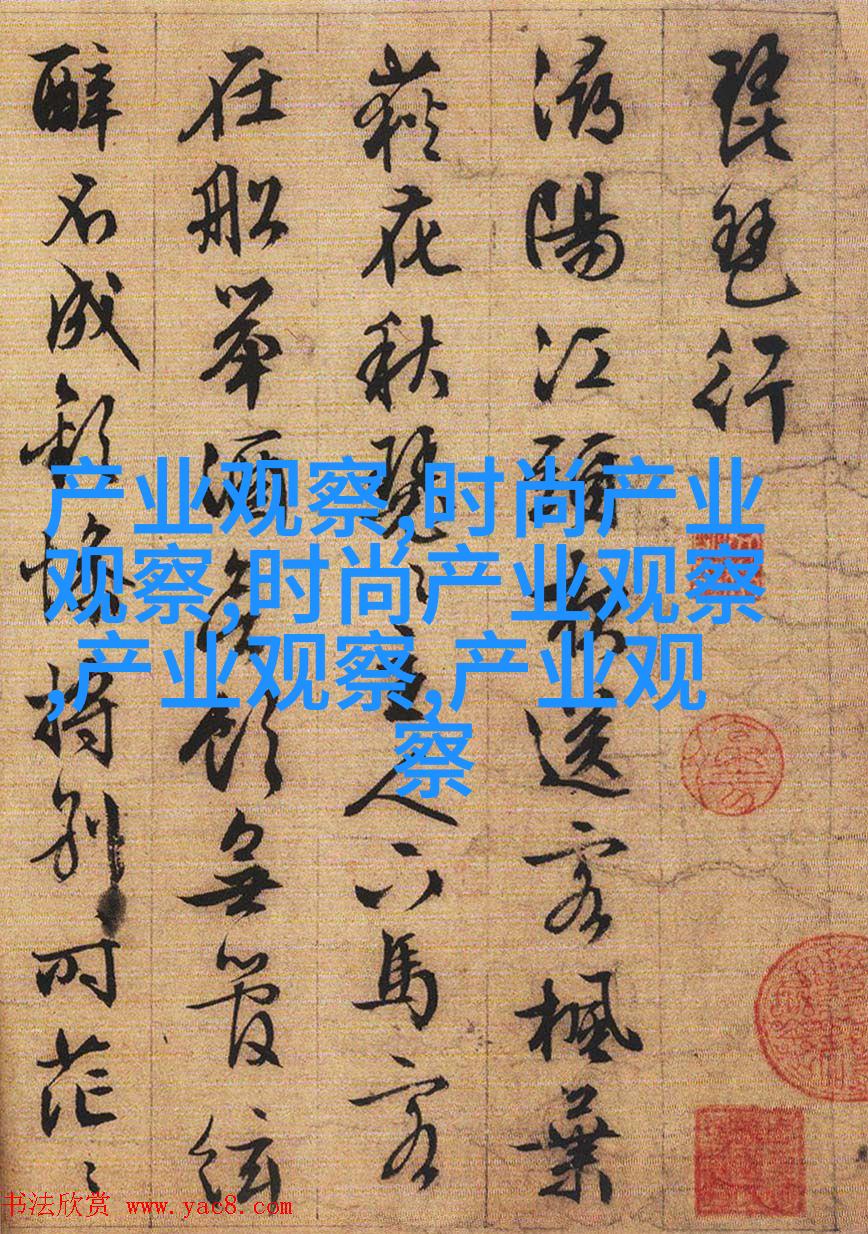 琵琶行
潯陽江頭夜送客楓葉
荻花秋瑟〻主人下馬客
在船舉酒欲飲無管絃
醉不成歡慘將別〻時茫〻
产业观察,时尚产业
观察,时尚产业观察
,产业观察,产业观
察
书法欣赏 www.yac8.com